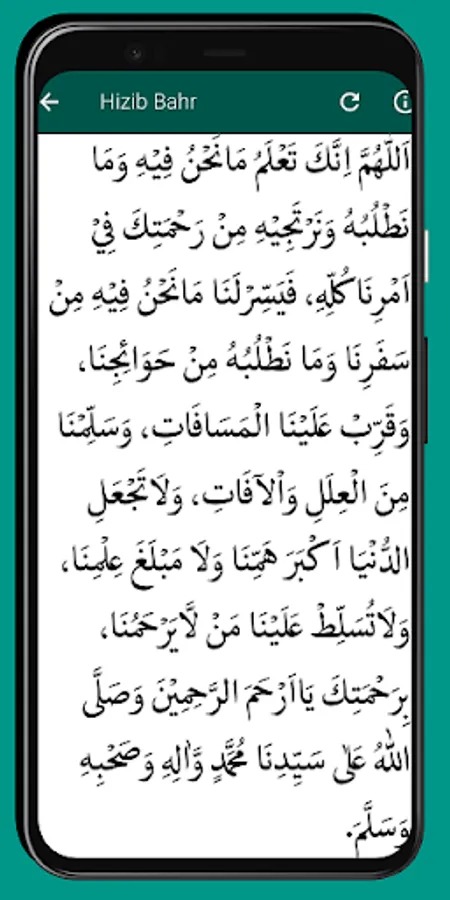 Hizib Bahr
اَللّٰهُمَّ اِنَّكَ تَعْلَمُ مَانَحْنُ فِيْهِ وَمَا
نَطْلُبُهُ وَنَرْتَجِيْهِ مِنْ رَحْمَتِكَ فِيْ
اَمْرِنَا كُلِّهِ، فَيَسِّرْلَنَا مَانَحْنُ فِيْهِ مِنْ
سَفَرِنَا وَمَا نَطْلُبُهُ مِنْ حَوَائِجِنَا،
وَقَرِّبْ عَلَيْنَا الْمَسَافَاتِ، وَسَلِّمْنَا
مِنَ الْعِلَلِ وَاْلآفَاتِ، وَلَاتَجْعَلِ
الدُّنْيَا اَكْبَرَ هَمِّنَا وَلَا مَبْلَغَ عِلْمِنَا،
وَلَاتُسَلِّطْ عَلَيْنَا مَنْ لَّايَرْحَمُنَا،
بِرَحْمَتِكَ يَااَرْحَمَ الرَّحِمِيْنَ وَصَلَّى
اللّٰهُ عَلٰى سَيِّدِنَا مُحَمَّدٍ وَّاٰلِهِ وَصَحْبِهِ
وَسَلَّمَ.